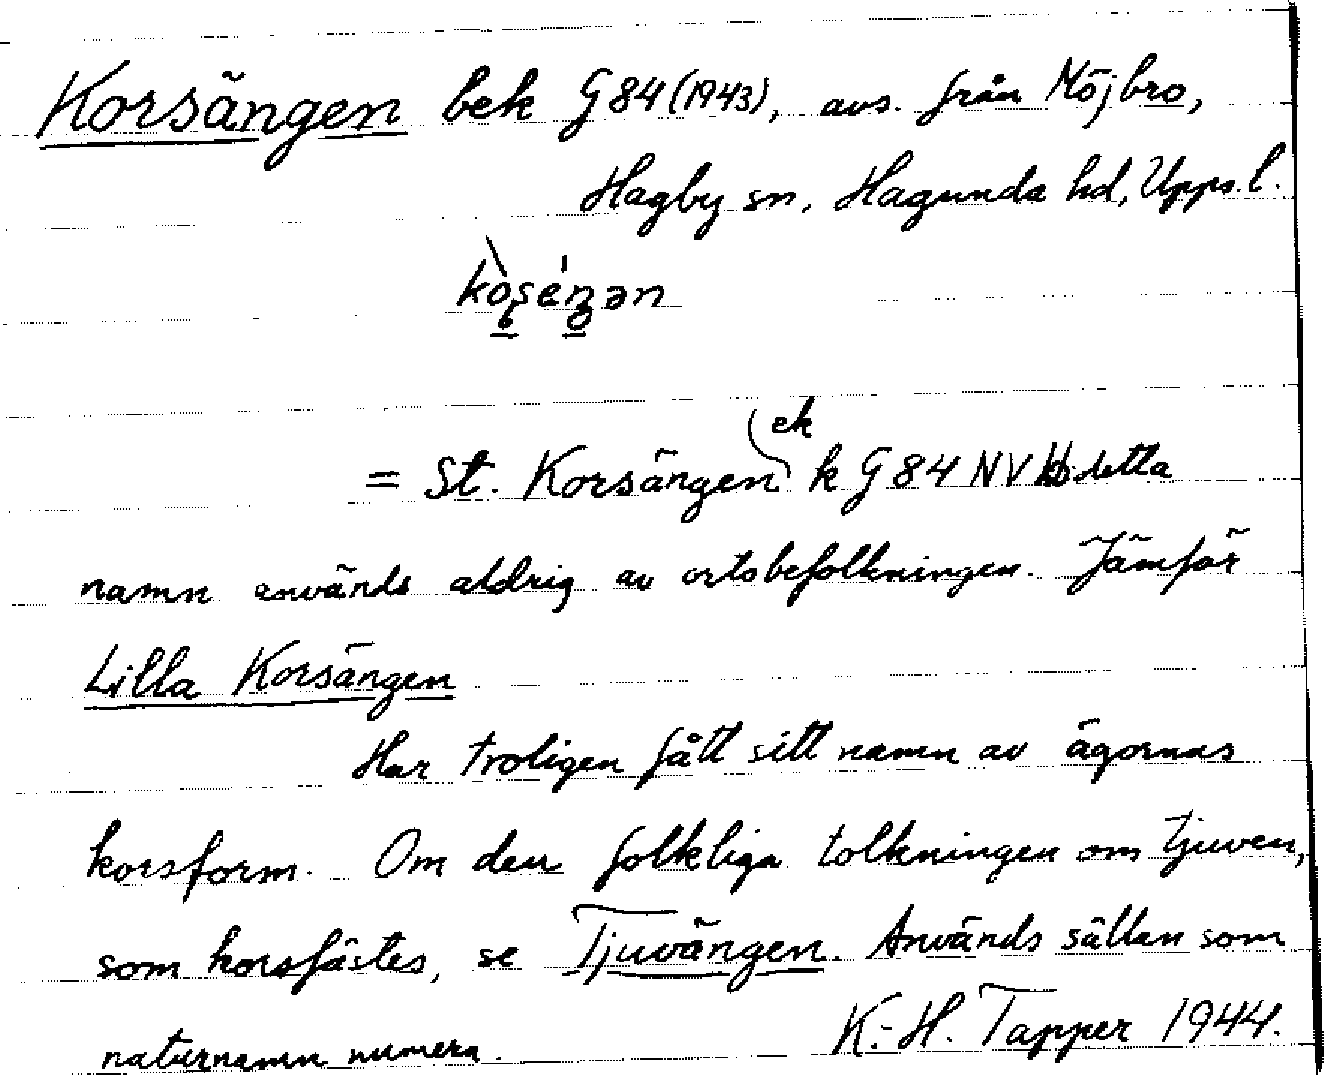 Korsängen bek G 84 (1943), avs. från Möjbro,
Hagby sn, Hagunda hd, Upps. l.
= St. Korsängen ek k G 84 NV detta
namn används aldrig av ortsbefolkningen. Jämför
Lilla Korsängen
Har troligen fått sitt namn av ägornas
korsform. Om den folkliga tolkningen om tjuven,
som korsfästes, se Tjuvängen. Används sällan som
naturnamn numera. K.-H. Tapper 1944.